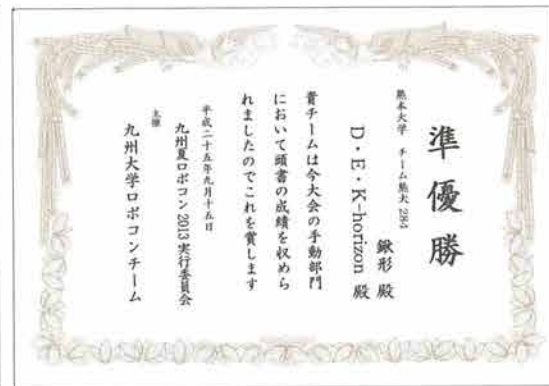 準優勝
熊本大学 チーム熊大2954
鍬形 殿
D・E・K-horizon 殿
貴チームは今大会の手動部門
において頭書の成績を収めら
れましたのでこれを賞します
平成二十五年九月十五日
九州夏ロボコン2013実行委員会
主催
九州大学ロボコンチーム